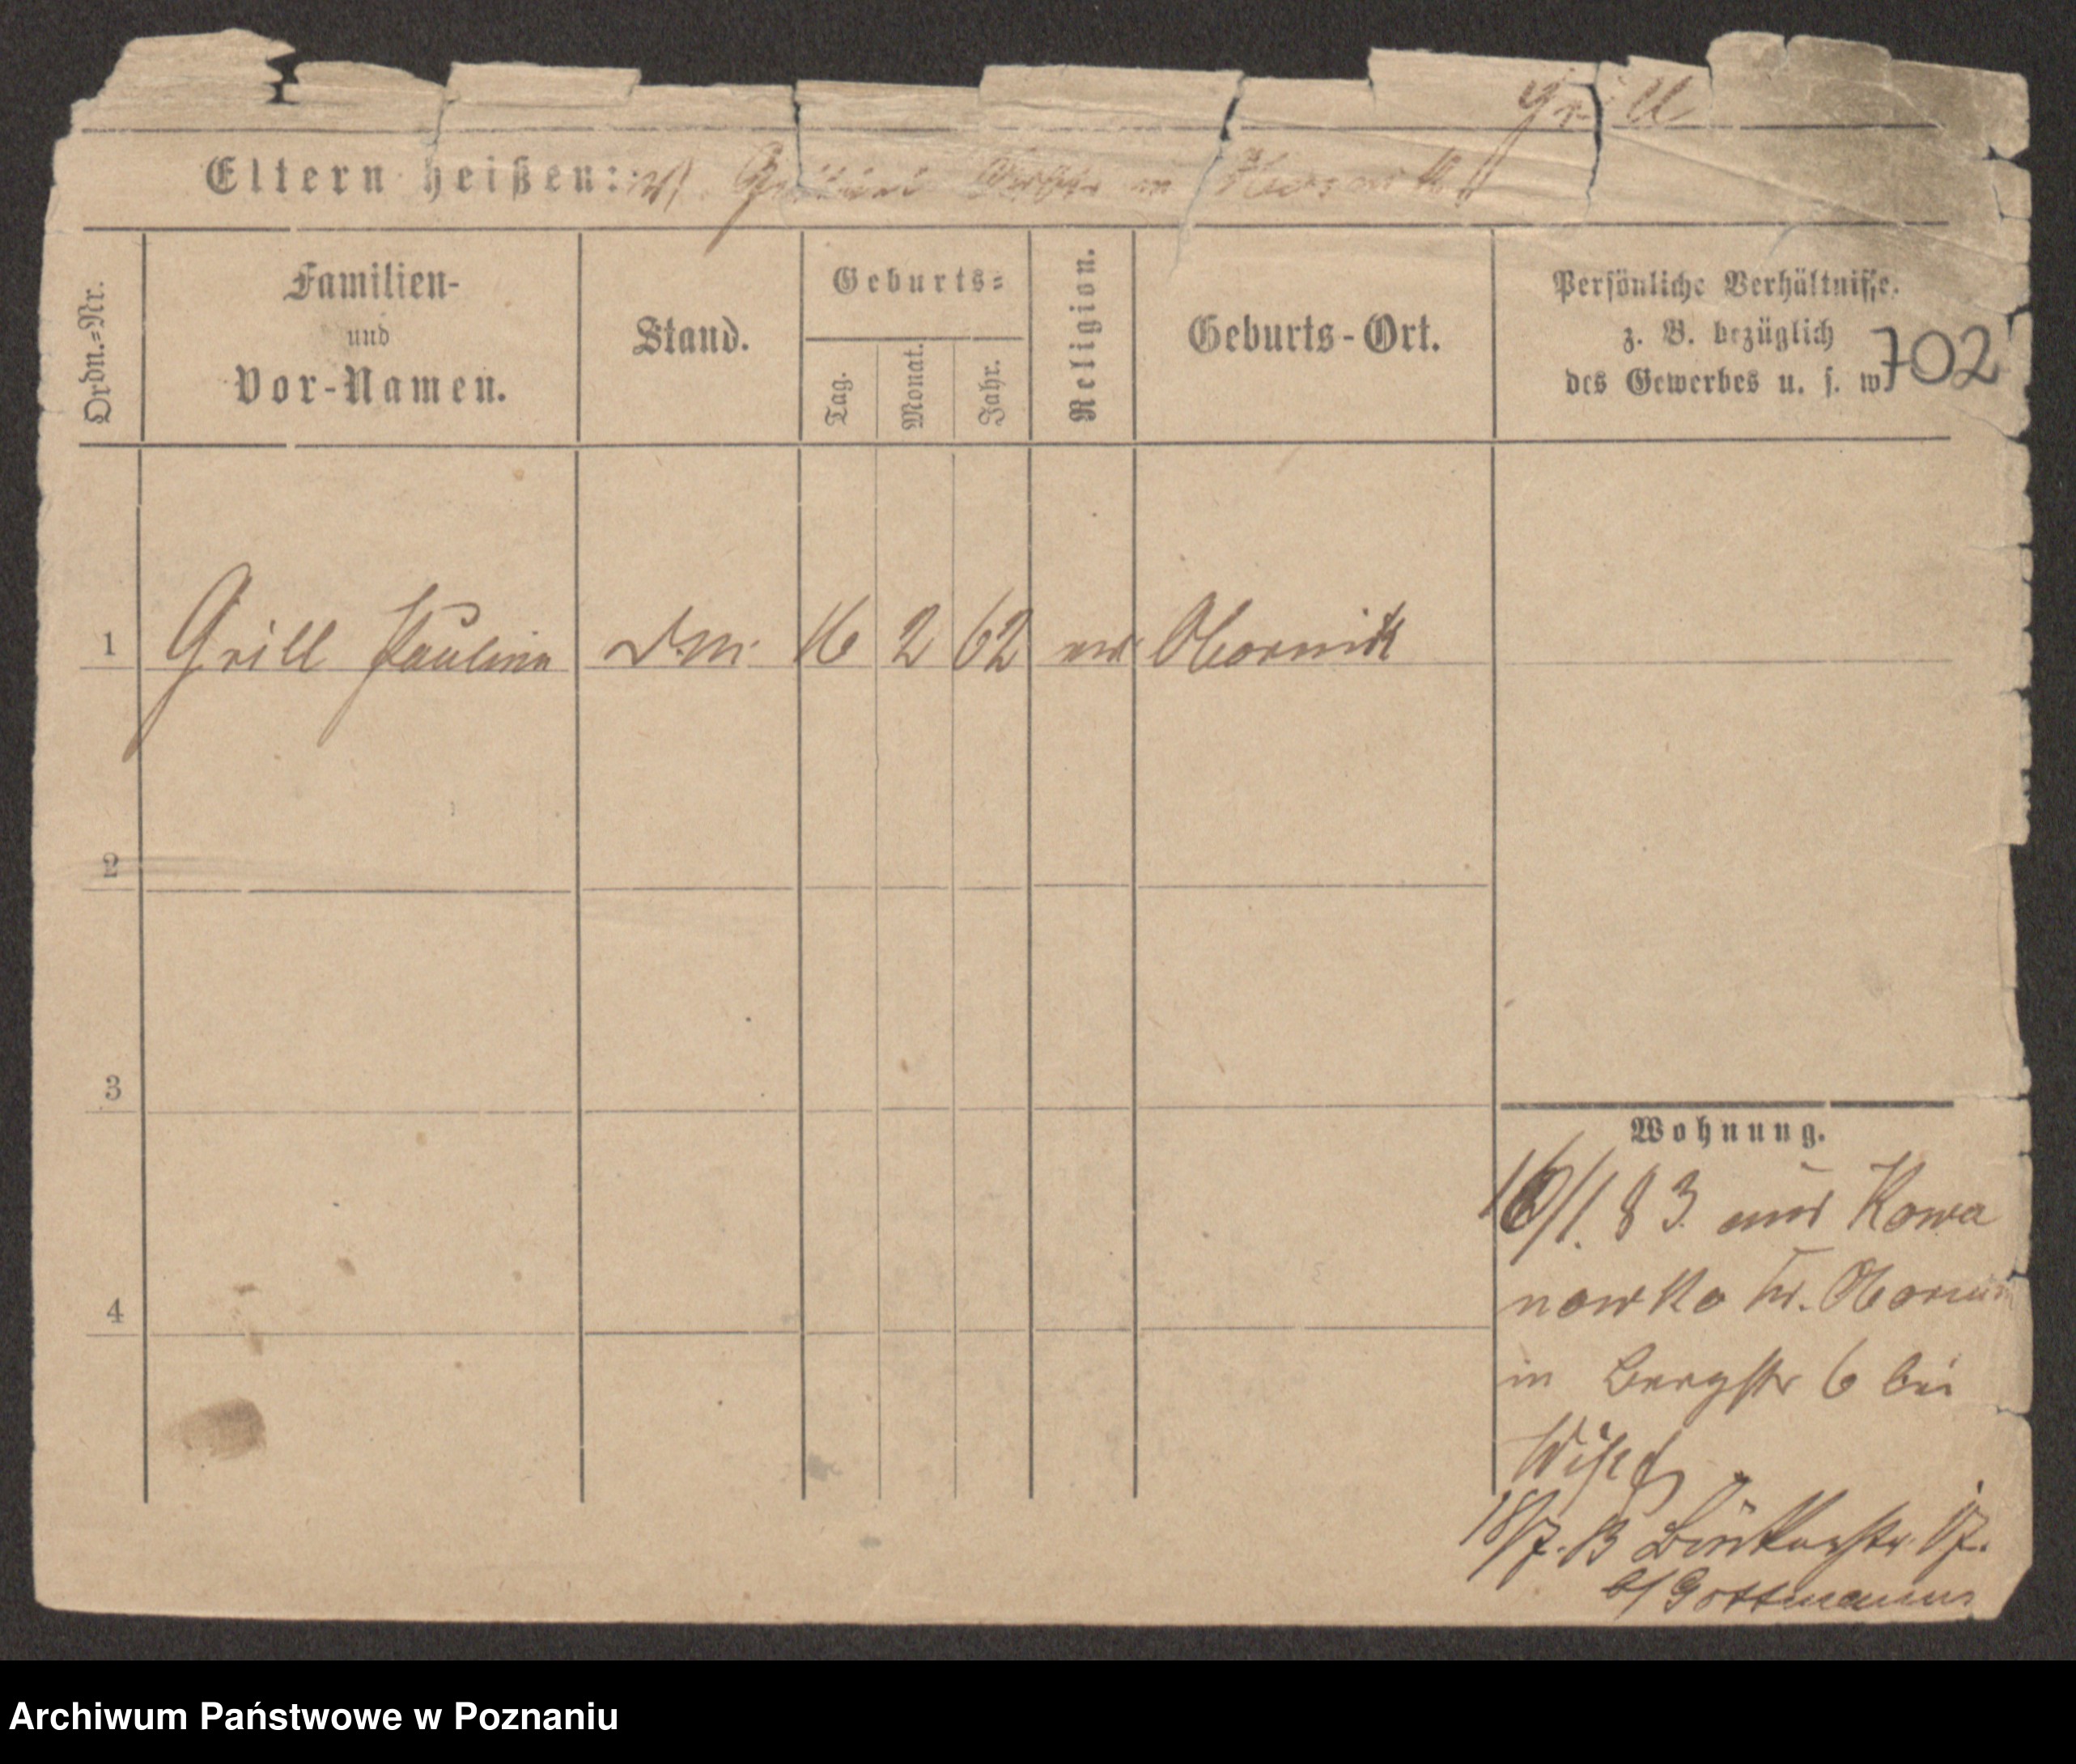 Grill
Eltern heißen: in
Ordn.=Nr.
Familien-
und
Vor-Namen.
Stand.
Geburts=
Tag.
Monat.
Jahr.
Religion.
Geburts-Ort.
Persönliche Verhältnisse,
z. B. bezüglich
des Gewerbes u. s. w.
702
1 Grill Paulina D.M. 16 2 62 Obornik
2
3
4
Wohnung.
16/1. 83. aus Kowa
nowko Kr. Obornik
in Bergstr 6 bei
18/7. 17.
b/ Gottmann
Archiwum Państwowe w Poznaniu